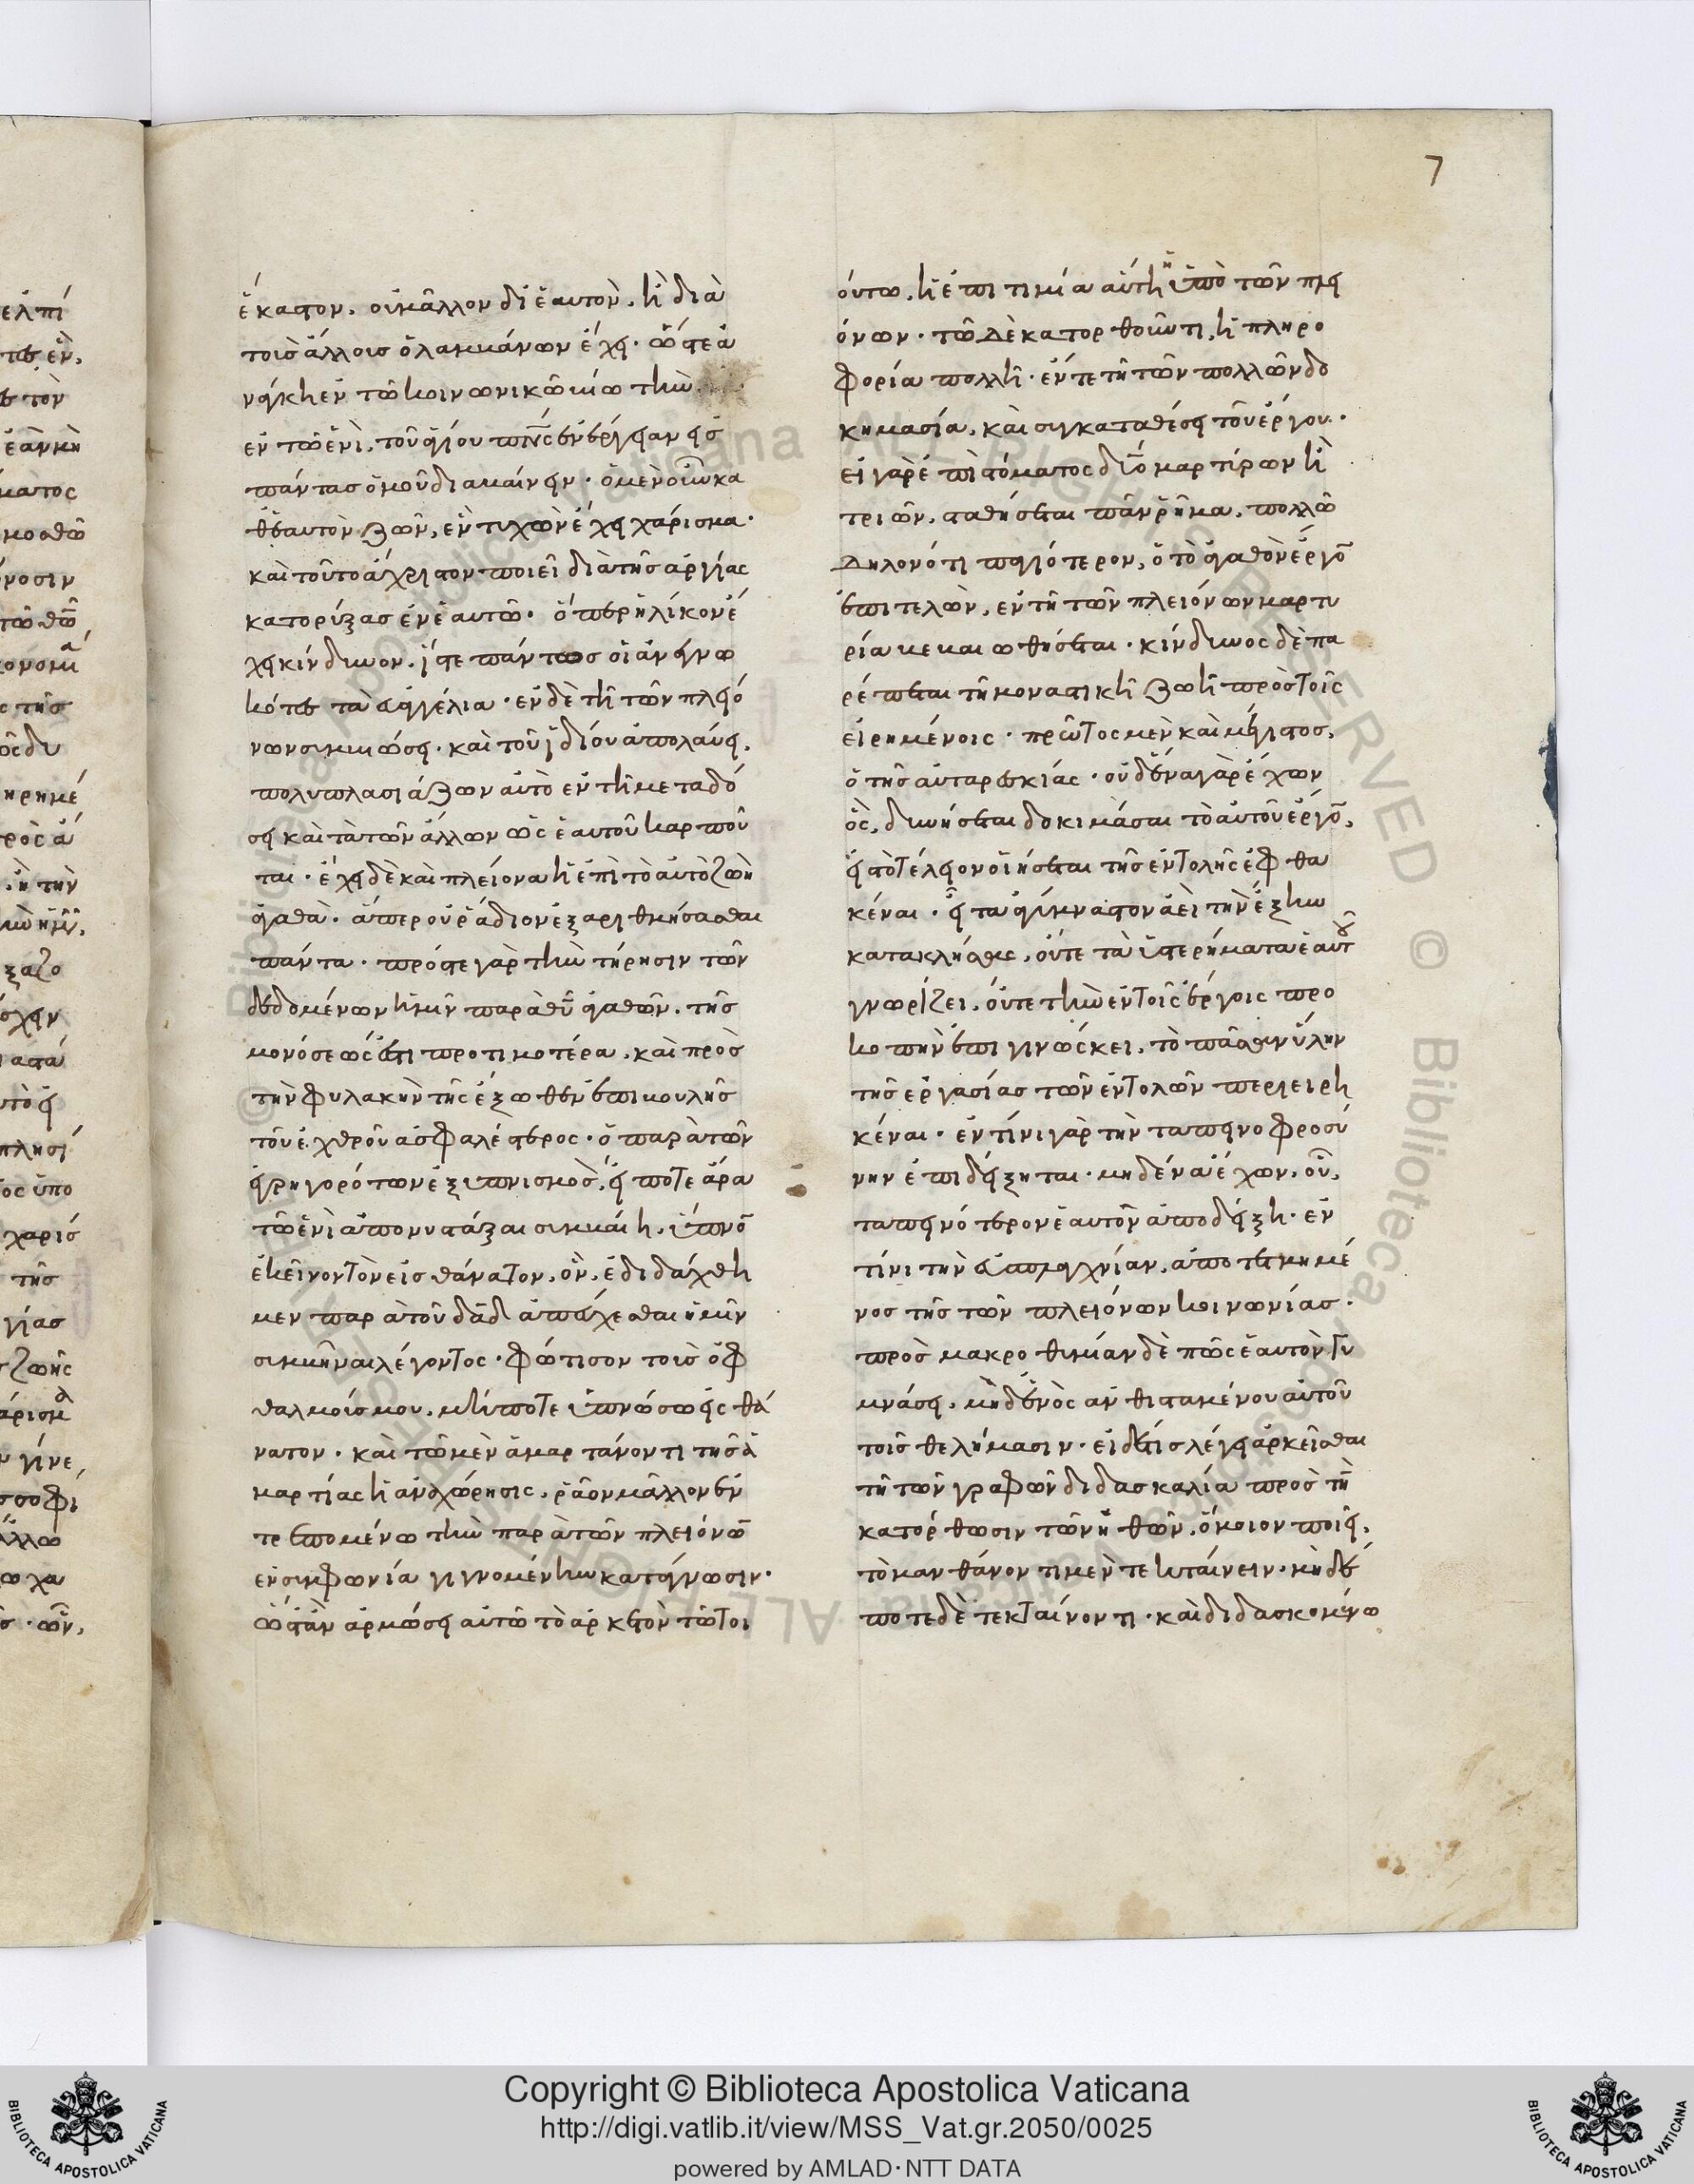 7
ἕκαστον. οὐ μᾶλλον δι' ἑαυτὸν, ἢ διὰ
τοὺς ἄλλους ὁ λαμβάνων ἔχει· ὥστε ἀ
νάγκη ἐν τῶ κοινωνικῶ βίω τὴν
ἐν τῶ ἑνὶ, τοῦ ἁγίου πνς ἐνέργειαν εἰς
πάντας ὁμοῦ διαβαίνειν· ὁ μὲν οὖν κα
θ' ἑαυτὸν ζῶν, ἓν τυχὸν ἔχει χάρισμα·
καὶ τοῦτο ἄχρηστον ποιεῖ διὰ τῆς ἀργίας
κατορύξας ἐν ἑαυτῶ· ὅπερ ἡλίκον ἔ
χει κίνδυνον, ἴστε πάντως οἱ ἀνεγνω
κότες τὰ εὐαγγέλια· ἐν δὲ τῆ τῶν πλειό
νων συμβιώσει· καὶ τοῦ ἰδίου ἀπολαύει,
πολυπλασιάζων αὐτὸ ἐν τῆ μεταδό
σει καὶ τὰ τῶν ἄλλων ὡς ἑαυτοῦ καρποῦ
ται· ἔχει δὲ καὶ πλείονα ἡ ἐπὶ τὸ αὐτὸ ζωὴ
ἀγαθὰ· ἅπερ οὐ ῥάδιον ἐξαριθμήσασθαι
πάντα· πρός τε γὰρ τὴν τήρησιν τῶν
δεδομένων ἡμῖν παρὰ θῦ ἀγαθῶν, τῆς
μονώσεώς ἐστι προτιμοτέρα, καὶ πρὸς
τὴν φυλακὴν τῆς ἔξωθεν ἐπιβουλῆς
τοῦ ἐχθροῦ ἀσφαλέστερος· ὁ παρὰ τῶν
ἐγρηγορότων ἐξυπνισμὸς, εἴ ποτε ἄρα
τῶ ἑνὶ ἀπονυστάξαι συμβαίη, ὕπνον
ἐκεῖνον τὸν εἰς θάνατον, ὃν, ἐδιδάχθη
μεν παρὰ τοῦ δαδ ἀπεύχεσθαι ἡμῖν
συμβῆναι λέγοντος· φώτισον τοὺς ὀφ
θαλμούς μου, μήποτε ὑπνώσω εἰς θά
νατον· καὶ τῶ μὲν ἁμαρτάνοντι τῆς ἁ
μαρτίας ἡ ἀναχώρησις, ῥᾶον μᾶλλον ἐν
τρεπομένω τὴν παρὰ τῶν πλειόνων
ἐν συμφωνία γιγνομένην κατάγνωσιν·
ὥστ' ἂν ἁρμόσει αὐτῶ τὸ ἀρκετὸν τῶ τοι
ούτω, ἡ ἐπιτιμία αὕτη ἡ ὑπὸ τῶν πλει
όνων· τῶ δὲ κατορθοῦντι, ἡ πληρο
φορία πολλὴ· ἔν τε τῆ τῶν πολλῶν δο
κιμασία, καὶ συγκαταθέσει τοῦ ἔργου·
εἰ γὰρ ἐπὶ στόματος δύο μαρτύρων ἢ
τριῶν, σταθήσεται πᾶν ῥῆμα, πολλῶ
δηλονότι παγιότερον, ὁ τὸ ἀγαθὸν ἔργον
ἐπιτελῶν, ἐν τῆ τῶν πλειόνων μαρτυ
ρία βεβαιωθήσεται· κίνδυνος δὲ πα
ρέπεται τῆ μοναστικῆ ζωῆ πρὸς τοῖς
εἰρημένοις· πρῶτος μὲν καὶ μέγιστος,
ὁ τῆς αὐταρεσκίας· οὐδένα γὰρ ἔχων
ὃς, δυνήσεται δοκιμάσαι τὸ αὐτοῦ ἔργον,
εἰς τὸ τέλειον οἰήσεται τῆς ἐντολῆς ἐφθα
κέναι· εἶτα ἀγύμναστον ἀεὶ τὴν ἕξιν
κατακλείσας, οὔτε τὰ ὑστερήματα ἑαυτοῦ
γνωρίζει, οὔτε τὴν ἐν τοῖς ἔργοις προ
κοπὴν ἐπιγινώσκει, τὸ πᾶσαν ὕλην
τῆς ἐργασίας τῶν ἐντολῶν περιειρη
κέναι· ἐν τίνι γὰρ τὴν ταπεινοφροσύ
νην ἐπιδείξηται· μηδένα ἔχων, οὗ,
ταπεινότερον ἑαυτὸν ἀποδείξη· ἐν
τίνι τὴν εὐσπλαγχνίαν, ἀποτετμημέ
νος τῆς τῶν πλειόνων κοινωνίας·
πρὸς μακροθυμίαν δὲ πῶς ἑαυτὸν γυ
μνάσει, μηδενὸς ἀνθισταμένου αὐτοῦ
τοῖς θελήμασιν· εἰ δέ τις λέγει ἀρκεῖσθαι
τῆ τῶν γραφῶν διδασκαλία πρὸς τὴν
κατόρθωσιν τῶν ἠθῶν, ὅμοιον ποιεῖ,
τὸ μανθάνοντι μὲν τεκταίνειν· μηδέ
ποτε δὲ τεκταίνοντι· καὶ διδασκομένω
Copyright © Biblioteca Apostolica Vaticana
http://digi.vatlib.it/view/MSS_Vat.gr.2050/0025
powered by AMLAD·NTT DATA
BIBLIOTECA APOSTOLICA VATICANA
BIBLIOTECA APOSTOLICA VATICANA